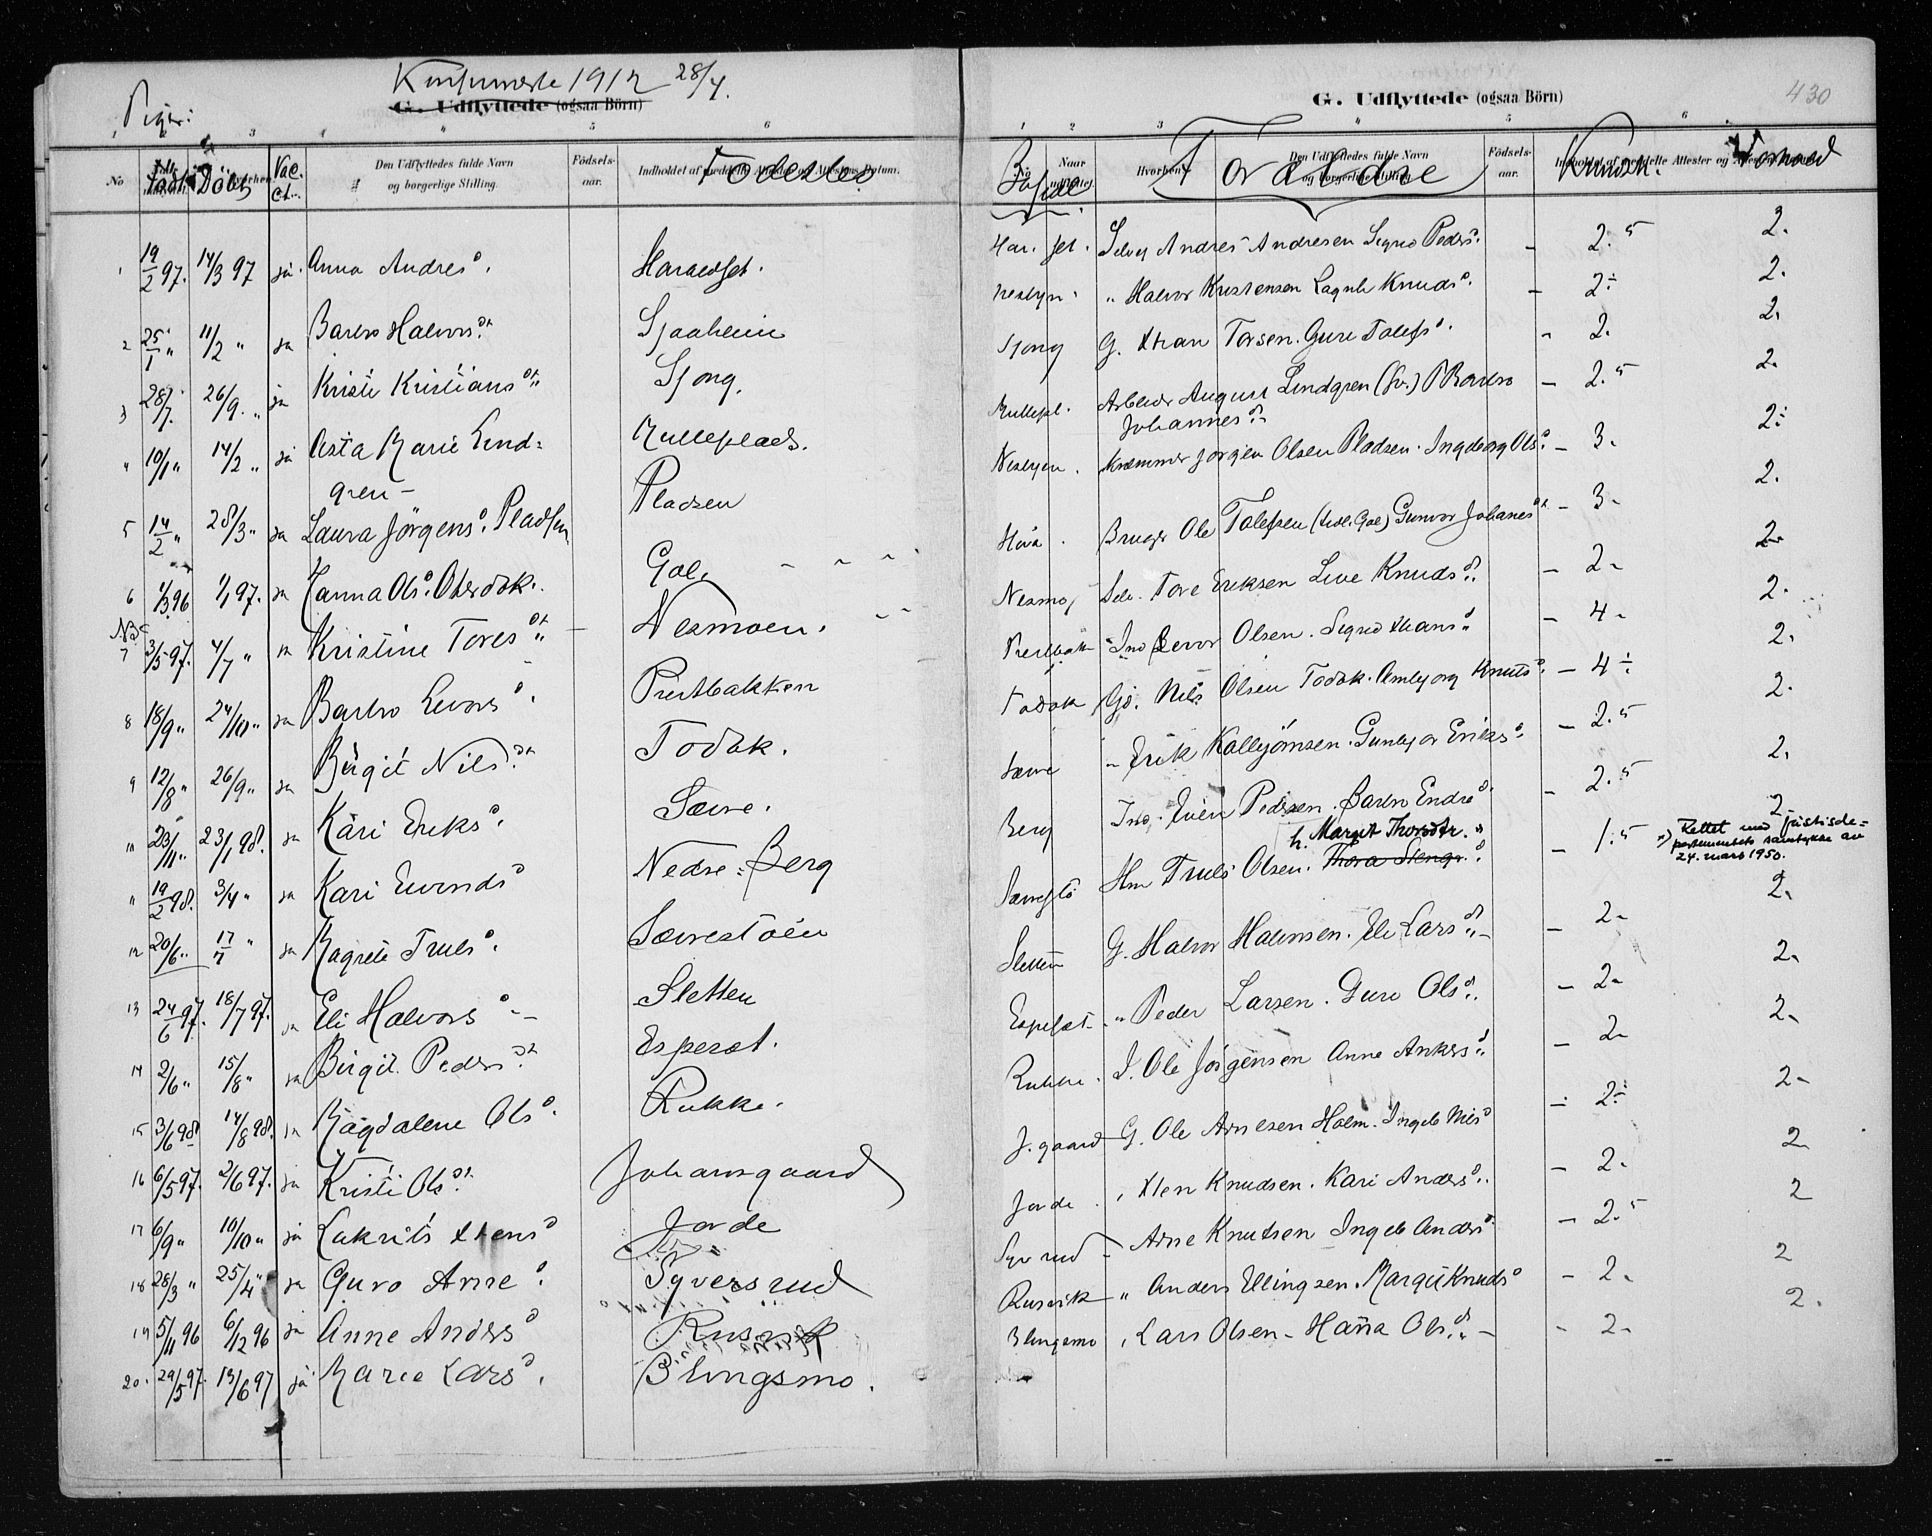 Konfirmerte 1912 28/4.
Piger:
G. Udflyttede (ogsaa Börn)
1 3 4 " 5 6
No Født Döbt Vac. ct. Den Udflyttedes fulde Navn og borgerlige Stilling. Födsels-aar. Indholdet af meddelte Attester og Attesternes Datum. Fødested
1 19/2 97. 14/3 97 ja. Anna Andresd. Haraldset.
2 25/1 " 11/2 " ja Barbro Halvorsdt. Sjaaheim
3 28/7. 26/9. " ja Kristi Kristiansdt. Sjong.
" 10/1 " 14/2 " ja Asta Marie Lind=
gren - Mulleplads.
5 14/2 " 28/3 " ja Laura Jörgensd. Pladsen Pladsen
6 1/3 96 1/1 97. ja Hanna Olsd. Gol.
NB
7 3/5 97. 4/7 " ja Kristine Toresdt. Nesmoen.
8 18/9 " 24/10 " ja Barbro Levorsd. Prestbakken
9 12/8 " 26/9 " ja Birgit Nilsdt. Todok.
10 23/11 " 23/1 98. ja Kari Eriksd. Sævre.
" 19/2 98. 3/4 " ja Kari Eivindsd Nedre=Berg
12 20/6 " 17/7 " ja Magrete Trulsd. Sævrestöen
13 24/6 97. 18/7 97. ja Eli Halvorsd - Sletten
14 2/6 " 15/8 " ja Birgit Pedersdt. Espeset.
15 3/6 98 14/8 98. ja Magdalene Olsd. Rukke.
16 6/5 97. 2/6 97. ja Kristi Olsdt. Johansgaard
17 6/9 " 10/10 " ja Lukrits Stensd Jorde
18 28/3 " 25/4 " ja Guro Arned. Syversrud
19 5/11 96 6/12 96 ja Anne Andersd Rusvik
20. 29/5 97. 13/6 97 ja Marie Larsd. Blingsmo.
430
G. Udflyttede (ogsaa Börn)
1 2 3 5 6
No Naar udflyttet. Hvorhen. Den Udflyttedes fulde Navn og borgerlige Stilling Födsels-aar. Indholdet af meddelte Attester og
Bopæl Forældre Kundsk. Forhold
Har. set. Selvej Andres Andresen Sigrid Pedersd. - 2.5 2.
Nesbyn " Halvor Kristensen Lagnh Knudsd. - 2÷ 2.
Sjong G. Khan Torsen. Guri Tolefsd. - 2. 2.
Mullepl. Arbeider August Lindgren (sv.) Barbro
Johannesd. - 2.5 2.
Nesbyen. Kræmmer Jörgen Olsen Pladsen. Ingeborg Olsd. - 3. 2÷
Bruger Ole Tolefsen (Gol) Gunvor Johanesdt - 3- 2.
Nesmo, Selv. Tore Eriksen Live Knudsd. - 2- 2-
Prestbak Ind Levor Olsen. Sigrid - 4- 2.
Todok Gd. Nils Olsen Todok. Ambjorg Knutsd. - 4÷ 2.
Sævre " Erik Kolbjörnsen. Gunbjor Eriksd. - 2.5 2.
Berg Ind. Eivin Pedersen. Barbro Endred. - 2.5 2.
h. Margit Thorsdtr. x)
Sævrestö Hm Truls Olsen. Thora Stengr. - 1.5 2-
x) Rettet med justisde=
partementets samtykke av
24. mars 1950.
Sletten G. Halvor Halvorsen. Eli Larsd. - - 2- 2.
Espeset. " Peder Larsen. Guro Olsd. - 2- 2.
Rukke. I. Ole Jörgensen Anne Ankersd. - 2- 2.
J. gaard G. Ole Arnesen Holm. Ingeb Nilsd - 2÷ 2-
Jorde. " Sten Knudsen. Kari Andersd. - 2. 2
Syv rud - Arne Knutsen Ingeb Andersd - 2.5 2
Rusvik " Anders Ellingsen. Margit Knudsd - 2. 2
Blingsmo " Lars Olsen - Hanna Olsd. - - 2- 2.